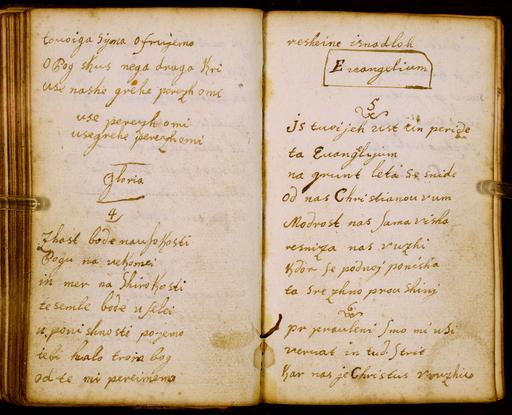 tvoiga Syna ofrujemo
O Bog skus nega draga Kri
use nashe grehe perezhomi
use perezhomi
usegrehe perezhomi
Gloria
4
Zhast bode na visokosti
Bogu na vekomei
in mer na shirokosti
te semle bode u selei
u poni shnosti pojemo
tebi hvalo troia bog
od te mi pereimemo
resheine isnadlok
Evangelium
5
is tvoijeh ust tin peride
ta Evangelijum
na grunt leta se snide
od nas Christianou rum
Modrost nas sama visha
resniza nas vuzhi
Kdor se podnoj poniska
ta srezhno prou shivi
6
pr prauleni smo mi usi
veruat in tud strit
Kar nas je Christus vvuzhio